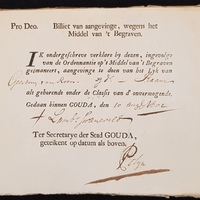 Pro Deo. Billiet van aangevinge, wegens het
Middel van 't Begraven.
IK ondergeschreve verklare by dezen, ingevolge
van de Ordonnantie op 't Middel van 't Begraven
geëmaneert, aangevinge te doen van het Lyk van
als gehorende onder de Classis van d' onvermogende.
Gedaan binnen GOUDA, den 10 augt 1802
Ter Secretarye der Stad GOUDA,
geteikent op datum als boven.